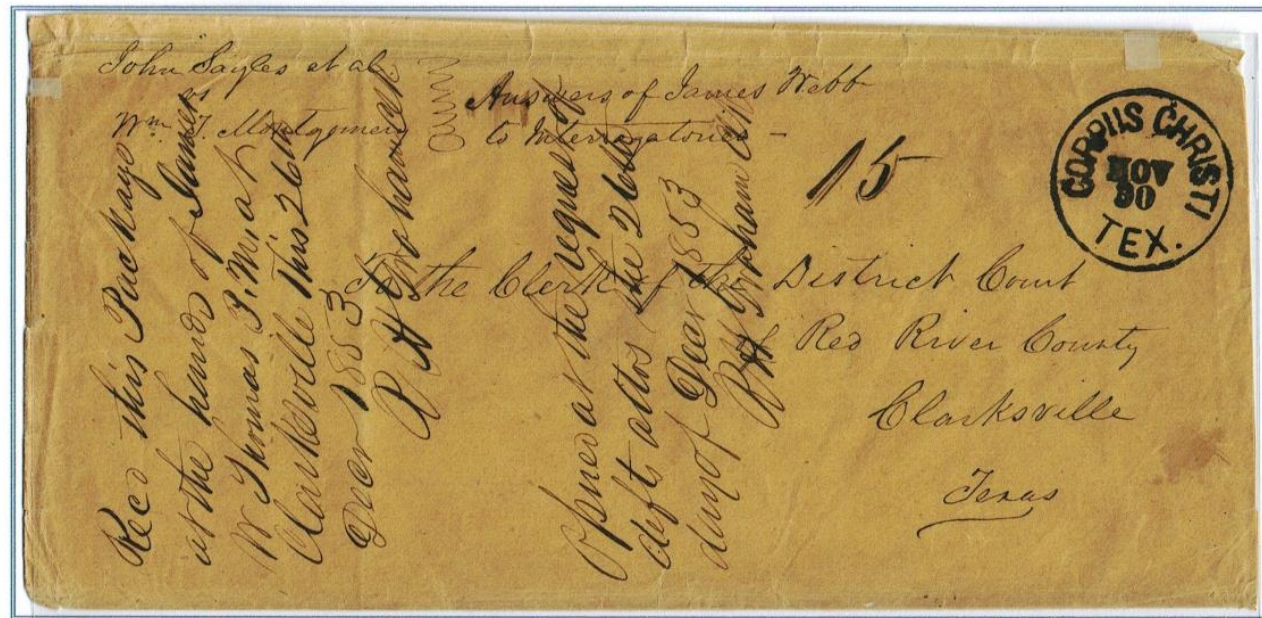 John Sayles et al
vs
Wm T. Montgomery
Answers of James Webb
to Interrogatories -
15
CORPUS CHRISTI
NOV
30
TEX.
To the Clerk of the District Court
of Red River County
Clarksville
Texas
Recd this Package
at the hands of James
W Thomas P.M. at
Clarksville this 26th
Decr 1853
Opned at the request of
defts attos the 26th
day of Decr 1853